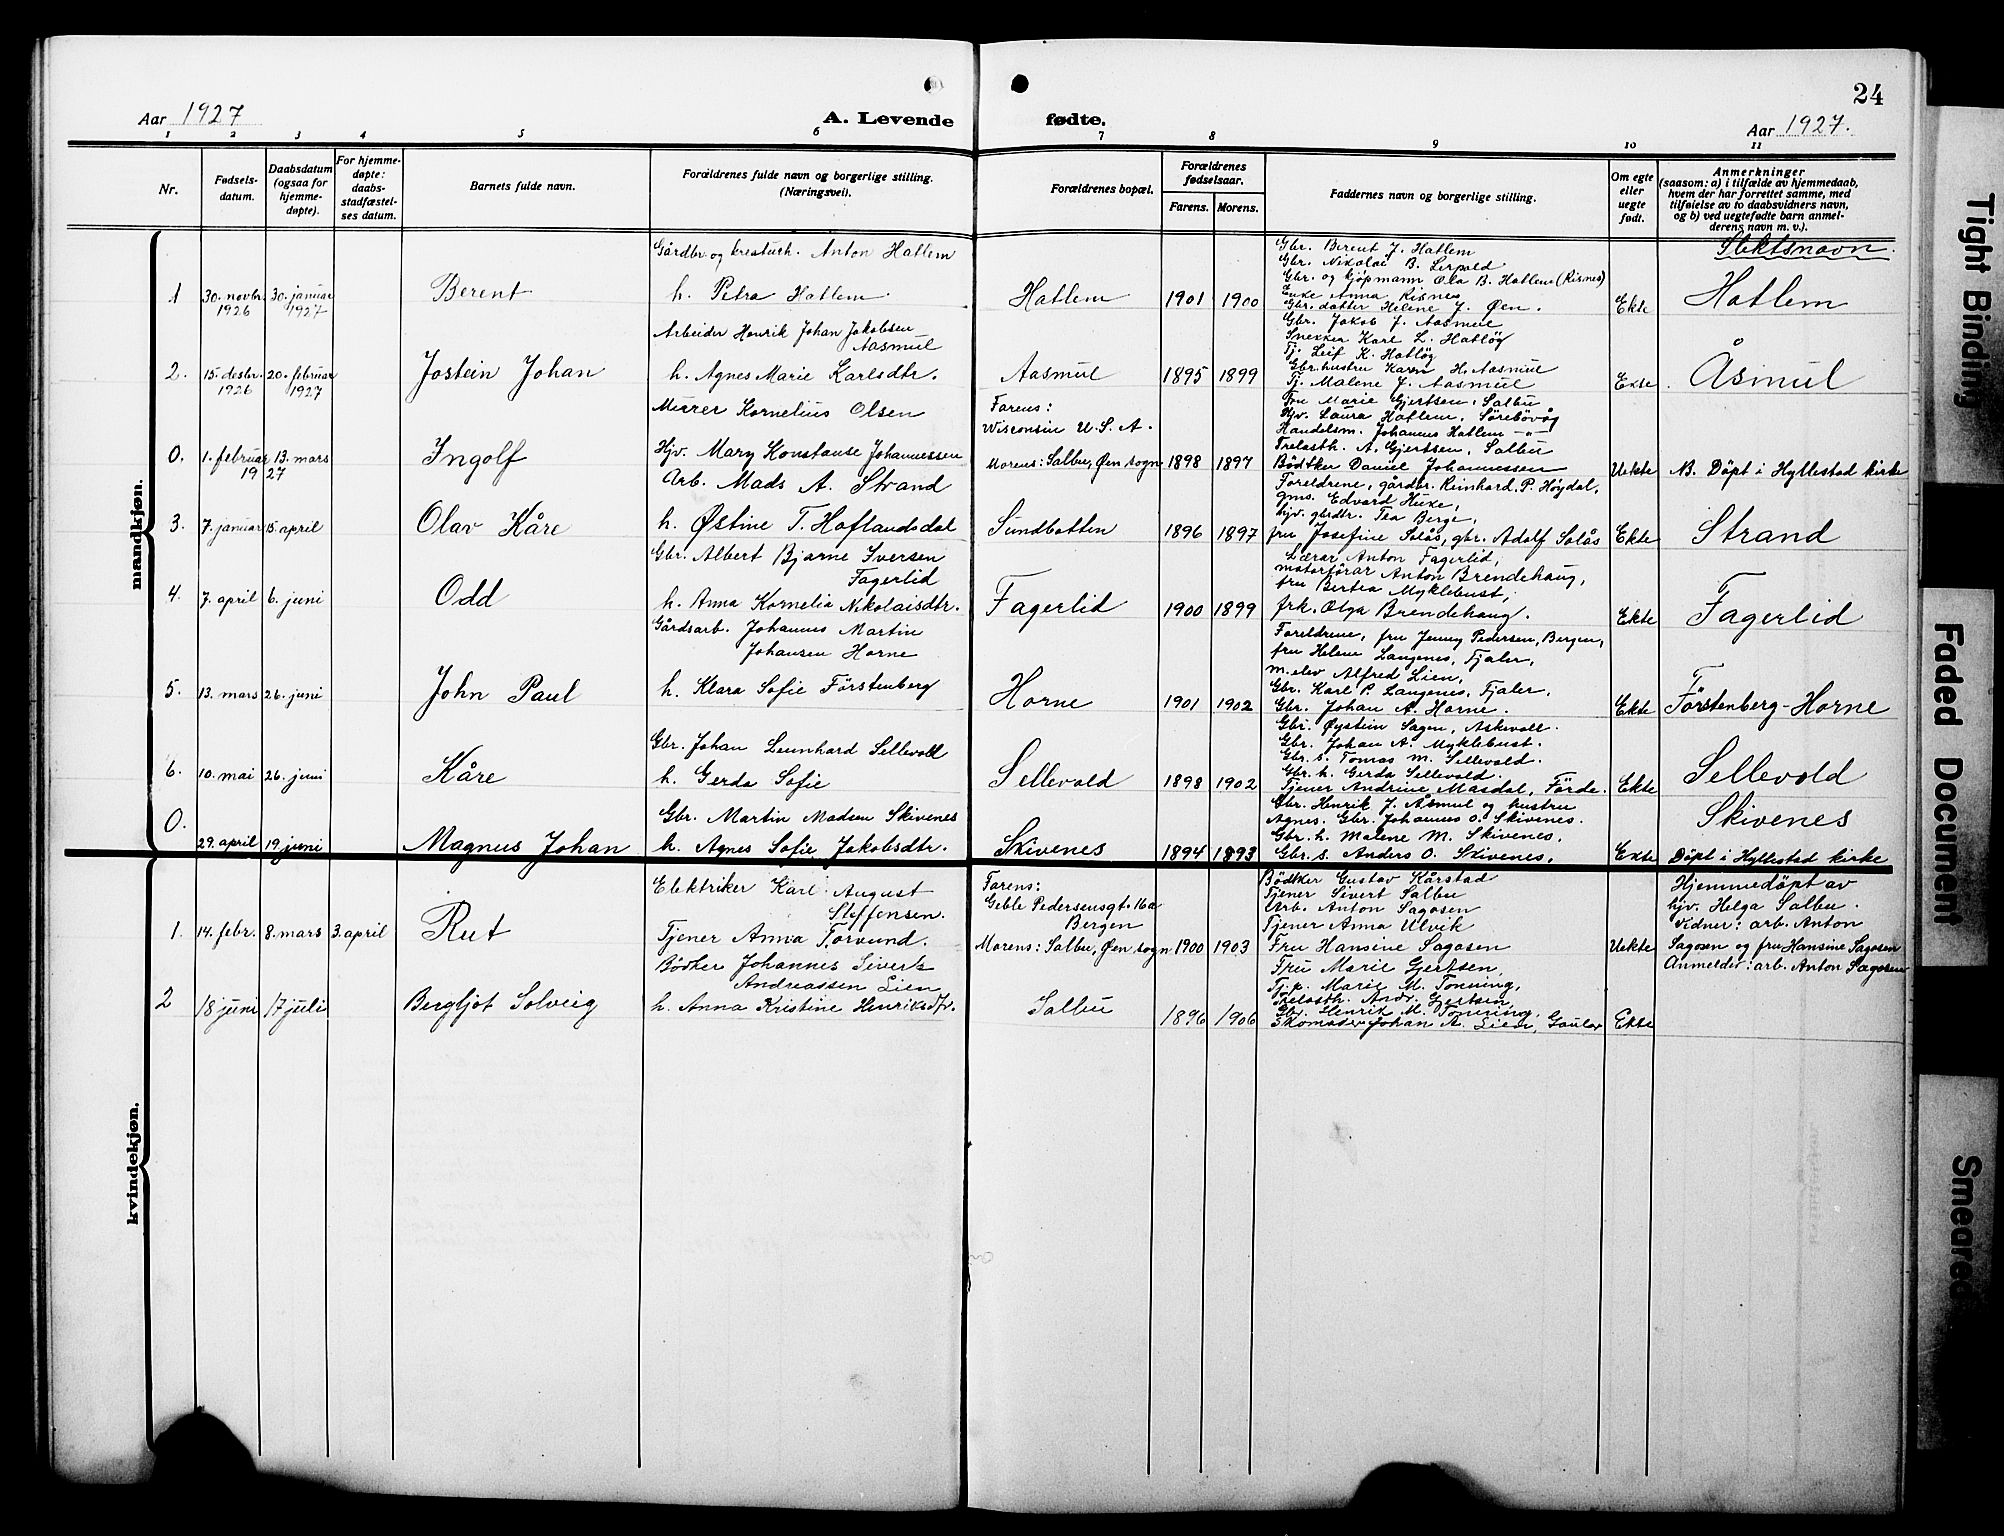 24
Aar 1927
A. Levende
fødte.
Aar 1927.
1 2 3 4 5 6 7 8 9 10 11
Nr.
Fødsels-
datum.
Daabsdatum
(ogsaa for
hjemme-
døpte).
For hjemme-
døpte:
daabs-
stadfæstel-
ses datum.
Barnets fulde navn.
Forældrenes fulde navn og borgerlige stilling.
(Næringsvei).
Forældrenes bopæl.
Forældrenes
fødselsaar.
Farens. Morens.
Faddernes navn og borgerlige stilling.
Om egte
eller
uegte
født.
Anmerkninger
(saasom: a) i tilfælde av hjemmedaab,
hvem der har forrettet samme, med
tilføielse av to daabsvidners navn,
og b) ved uegtefødte barn anmel-
derens navn m. v.).
Slektsnavn
mandkjøn.
1
30. novbr.
1926
30. januar
1927
Berent
Gårdbr. og kreaturh. Anton Hatlem
h. Petra Hatlem.
Hatlem
1901
1900
Gbr. Berent J. Hatlem
Gbr. Nikolai B. Leipold
Gbr. og kjøpmann Ola B. Hatlem (Risnes)
Enke Anna Risnes
Gbr. datter Helene J. Øen.
Ekte
Hatlem
2.
15. desbr.
1926
20. februar
1927
Jostein Johan
Arbeider Henrik Johan Jakobsen
Aasmul
h. Agnes Marie Karlsdtr.
Aasmul
1895
1899
Gbr. Jakob J. Aasmul
Snekker Karl L. Hatløy
Tj. Leif K. Hatløy
Gbr. hustru Karn H. Aasmul
Tj. Malene J. Aasmul
Ekte.
Åsmul
0.
1. februar
13. mars
19 27
Ingolf
Murer Kornelius Olsen
Hjv. Mary Konstanse Johannessen
Farens:
Wisconsin U.S.A.
Morens: Salbu, Øen sogn
1898
1897
Fru Marie Gjertsen, Salbu
Hjv. Laura Hatlem, Sörebövåg
Handelsm. Johannes Hatlem -"-
Trelasth. A. Gjertsen, Salbu
Bödtker Daniel Johannessen
Uekte
N. Döpt i Hyllestad kirke
3.
7. januar
15. april
Olav Kåre
Arb. Mads A. Strand
h. Østine T. Hoflandsdal
Sundbotten
1896
1897
Foreldrene, gårdbr. Reinhard P. Høydal,
gms. Edvard Huke,
hjv. gbrdtr. Tea Berge,
fru Josefine Solås, gbr. Adolf Solås
Ekte
Strand
4.
7. april
6. juni
Odd
Gbr. Albert Bjarne Iversen
Fagerlid
h. Anna Kornelia Nikolaisdtr.
Fagerlid
1900
1899
Lærar Anton Fagerlid,
motorförar Anton Brendehaug,
fru Bertea Myklebust,
frk. Olga Brendehaug.
Ekte
Fagerlid
5.
13. mars
26. juni
John Paul
Gårdsarb. Johannes Martin
Johansen Horne
h. Klara Sofie Förstenberg
Horne
1901
1902
Foreldrene, fru Jenny Pedersen, Bergen,
fru Helene Langenes, Fjaler,
m.elev Alfred Lien,
Gbr. Karl P. Langenes, Fjaler,
Gbr. Johan A. Horne.
Ekte
Förstenberg-Horne
6.
10. mai
26. juni
Kåre
Gbr. Johan Leonhard Sellevold
h. Gerda Sofie
Sellevold
1898
1902
Gbr. Øystein Sagen, Askvoll.
Gbr. Johan A. Myklebust.
Gbr. s. Tomas M. Sellevold.
Gbr. h. Gerda Sellevold.
Tjener Andrine Masdal, Förde.
Ekte
Sellevold
0.
29. april
19. juni
Magnus Johan
Gbr. Martin Madsen Skivenes
h. Agnes Sofie Jakobsdtr.
Skivenes
1894
1893
Gbr. Henrik J. Åsmul og hustru
Agnes. Gbr. Johannes O. Skivenes.
Gbr. h. Malene M. Skivenes.
Gbr. s. Anders O. Skivenes.
Ekte
Skivenes
Döpt i Hyllestad kirke
kvindekjøn.
1.
14. febr.
8. mars
3. april
Rut
Elektriker Karl August
Steffensen.
Tjener Anna Torvund.
Farens:
Geble Pedersensgt. 16a
Bergen
Morens: Salbu, Øen sogn
1900
1903
Bödtker Gustav Kårstad
Tjener Sivert Salbu
Arb. Anton Sagosen
Tjener Anna Ulvik
Fru Hansine Sagosen
Uekte
Hjemmedöpt av
hjv. Helga Salbu.
Vidner: arb. Anton
Sagosen og fru Hansine Sagosen
Anmelder: arb. Anton Sagosen
2
18 juni
17 juli
Bergljot Solveig
Bödker Johannes Sivert
Andreassen Lien
h. Anna Kristine Henriksdtr.
Salbu
1896
1906
Fru Marie Gjertsen,
Tj.p. Marie M. Tonning,
Trelasth. Andr. Gjertsen,
Gbr. Henrik M. Tonning,
Skomaker Johan A. Lien, Gaular
Ekte
Tight Binding
Faded Document
Smeared